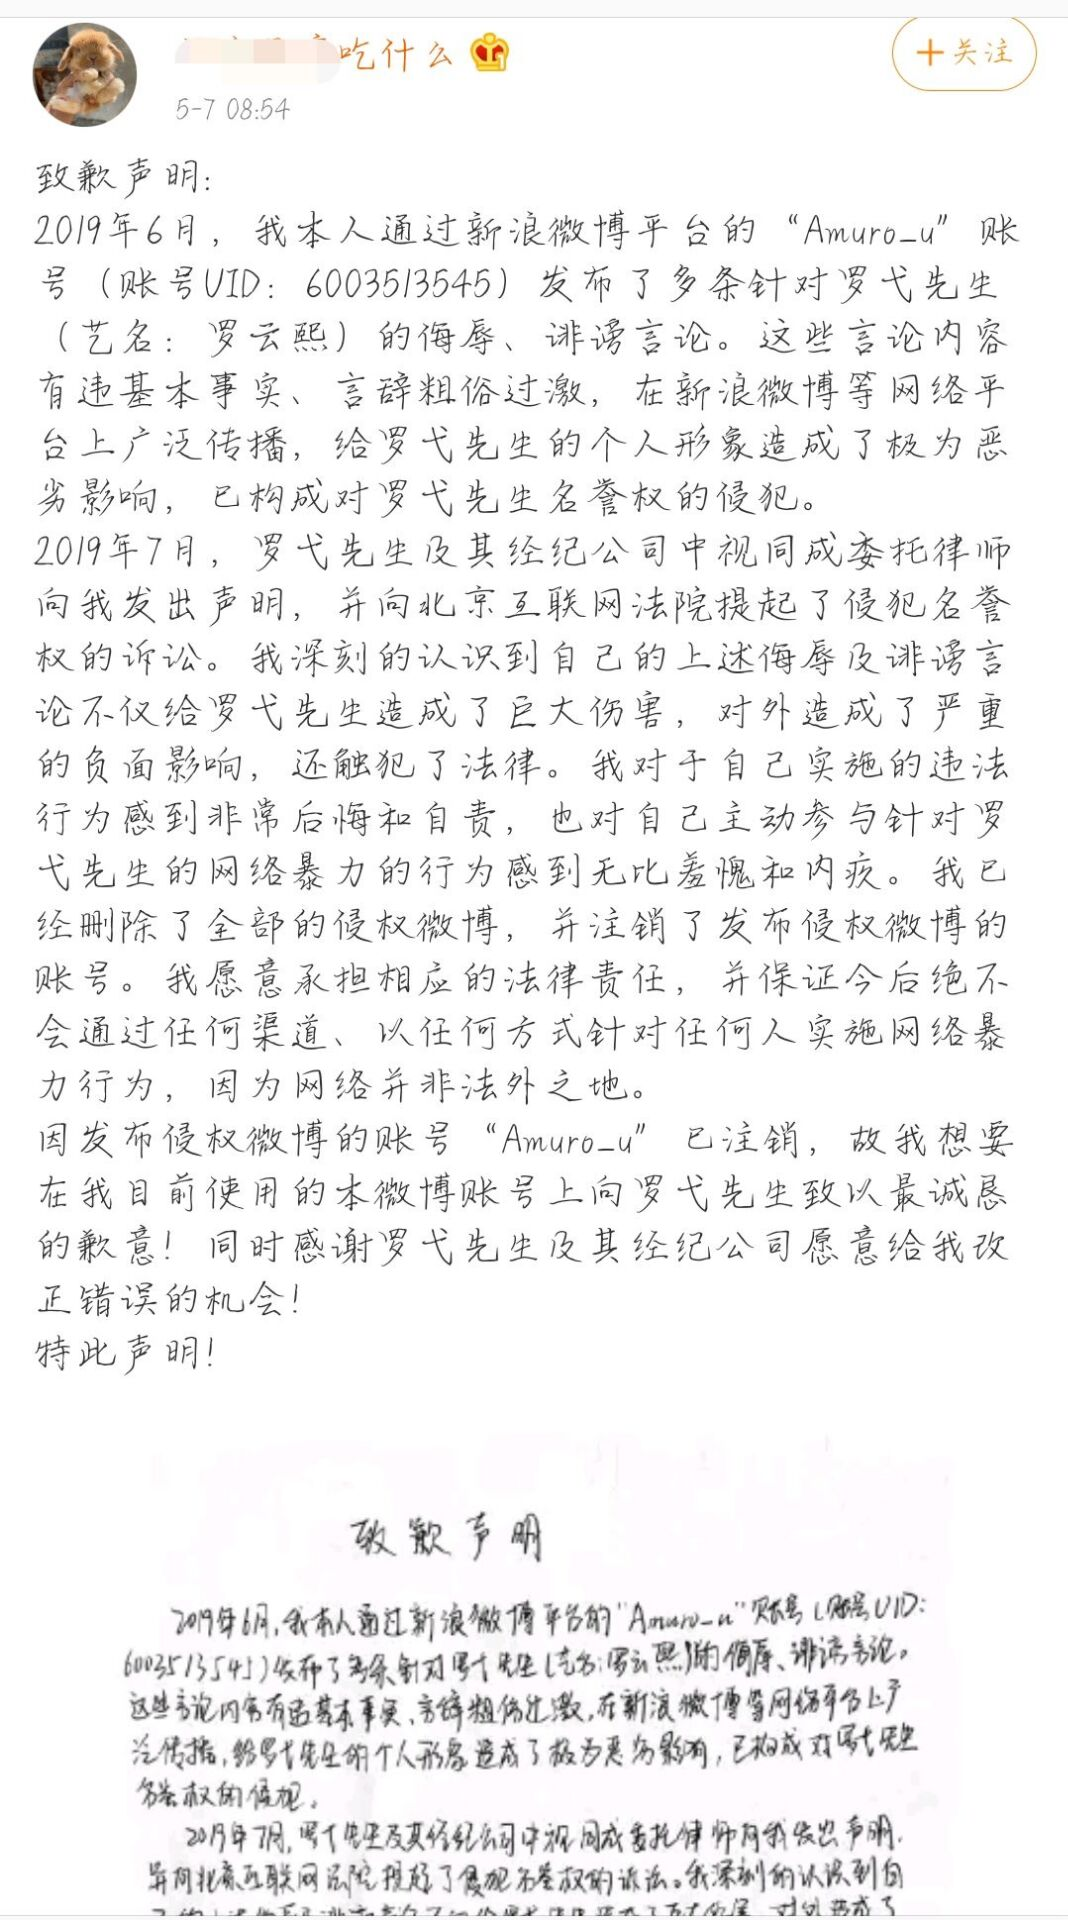 吃什么
+关注
5-7 08:54
致歉声明：
2019年6月，我本人通过新浪微博平台的“Amuro_u”账
号（账号UID：6003513545）发布了多条针对罗弋先生
（艺名：罗云熙）的侮辱、诽谤言论。这些言论内容
有违基本事实、言辞粗俗过激，在新浪微博等网络平
台上广泛传播，给罗弋先生的个人形象造成了极为恶
劣影响，已构成对罗弋先生名誉权的侵犯。
2019年7月，罗弋先生及其经纪公司中视同成委托律师
向我发出声明，并向北京互联网法院提起了侵犯名誉
权的诉讼。我深刻的认识到自己的上述侮辱及诽谤言
论不仅给罗弋先生造成了巨大伤害，对外造成了严重
的负面影响，还触犯了法律。我对于自己实施的违法
行为感到非常后悔和自责，也对自己主动参与针对罗
弋先生的网络暴力的行为感到无比羞愧和内疚。我已
经删除了全部的侵权微博，并注销了发布侵权微博的
账号。我愿意承担相应的法律责任，并保证今后绝不
会通过任何渠道、以任何方式针对任何人实施网络暴
力行为，因为网络并非法外之地。
因发布侵权微博的账号“Amuro_u”已注销，故我想要
在我目前使用的本微博账号上向罗弋先生致以最诚恳
的歉意！同时感谢罗弋先生及其经纪公司愿意给我改
正错误的机会！
特此声明！
致歉声明
2019年6月，我本人通过新浪微博平台的“Amuro_u”账号（账号UID：
6003513545）发布了多条针对罗弋先生（艺名：罗云熙）的侮辱、诽谤言论。
这些言论内容有违基本事实、言辞粗俗过激，在新浪微博等网络平台上广
泛传播，给罗弋先生的个人形象造成了极为恶劣影响，已构成对罗弋先生
名誉权的侵犯。
2019年7月，罗弋先生及其经纪公司中视同成委托律师向我发出声明，
并向北京互联网法院提起了侵犯名誉权的诉讼。我深刻的认识到自